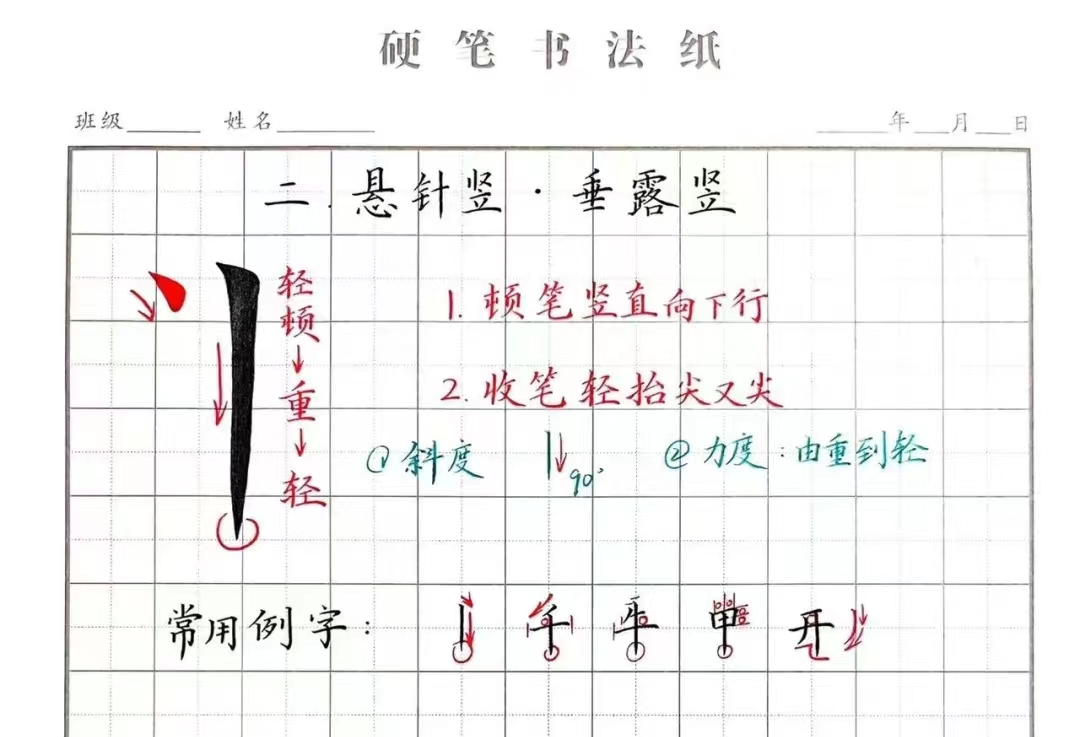 硬笔书法纸
班级______ 姓名________ ______年___月___日
二.悬针竖·垂露竖
轻顿→重→轻
1.顿笔竖直向下行
2.收笔轻抬尖又尖
①斜度 90° ②力度:由重到轻
常用例字: 丨 千 平 申 开